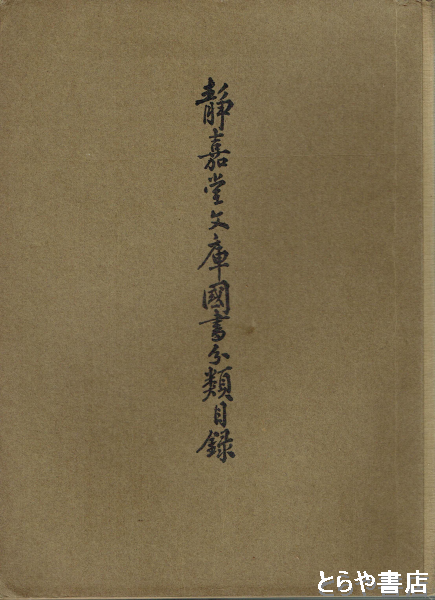 靜嘉堂文庫國書分類目録
とらや書店